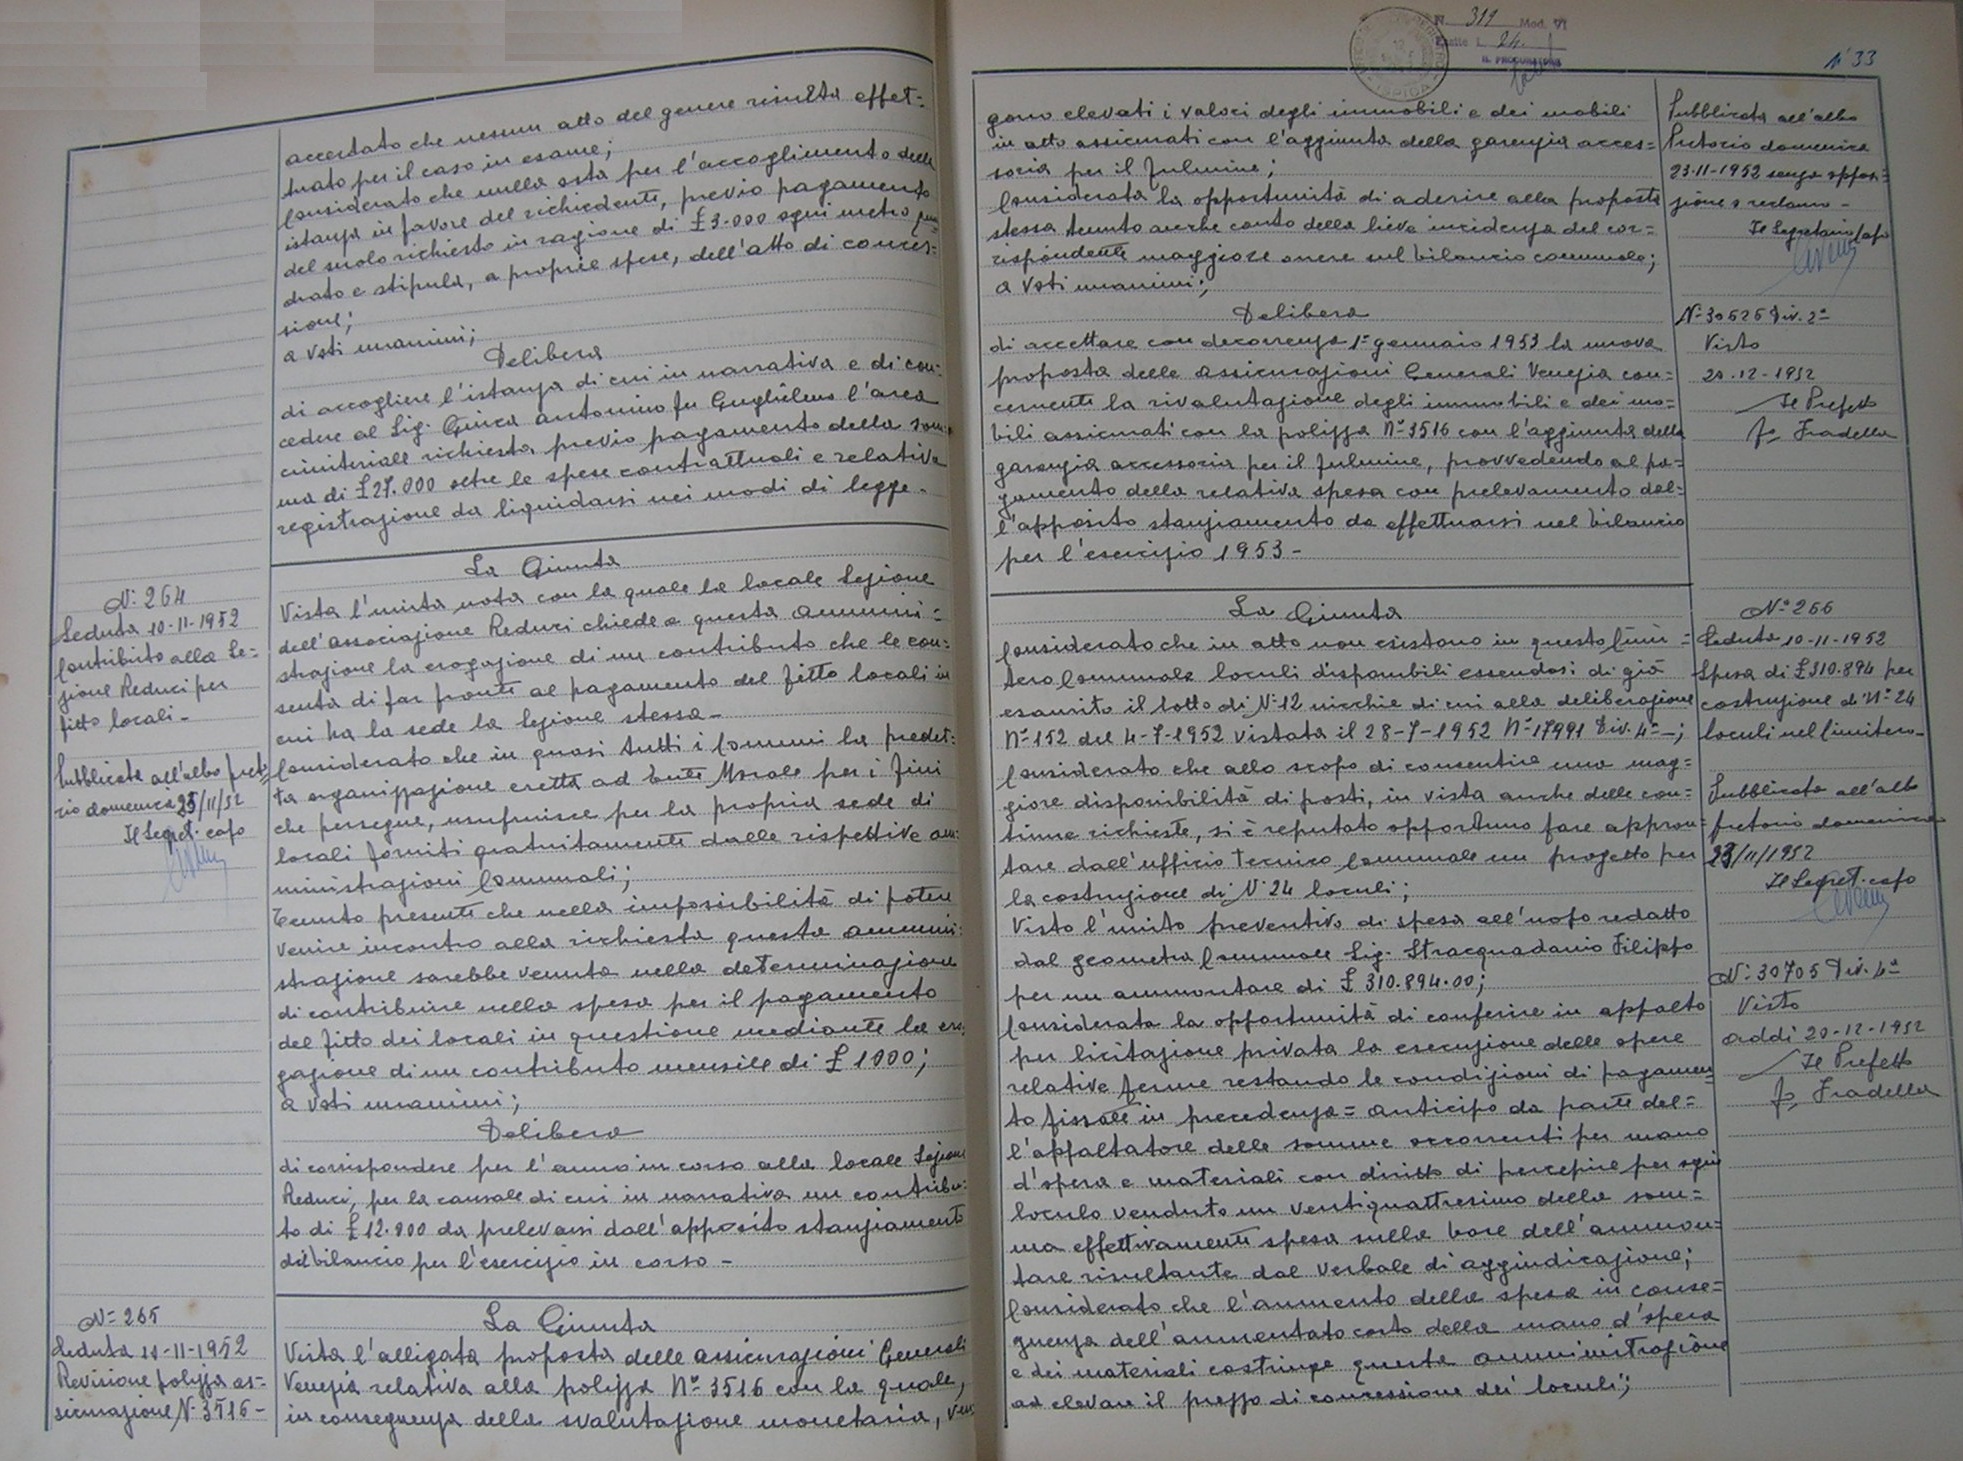 accertato che nessun atto del genere risulta effet=
tuato per il caso in esame;
Considerato che nulla osta per l'accoglimento della
istanza in favore del richiedente, previo pagamento
del suolo richiesto in ragione di £ 3.000 ogni metro qua
drato e stipula, a proprie spese, dell'atto di conces=
sione;
a voti unanimi;
Delibera
di accogliere l'istanza di cui in narrativa e di con=
cedere al Sig. Antonino fu Guglielmo l'area
cimiteriale richiesta previo pagamento della som=
ma di £ 27.000 oltre le spese contrattuali e relativa
registrazione da liquidarsi nei modi di legge.
N. 264
Seduta 10-11-1952
Contributo alla Le=
gione Reduci per
fitto locali -
Pubblicata all'albo preto
rio domenica 23/11/52
Il Segret. capo
La Giunta
Vista l'unita nota con la quale la locale Legione
dell'associazione Reduci chiede a questa ammini=
strazione la erogazione di un contributo che le con=
senta di far fronte al pagamento del fitto locali in
cui ha la sede la legione stessa -
Considerato che in quasi tutti i Comuni la predet=
ta organizzazione eretta ad Ente Morale per i fini
che persegue, usufruisce per la propria sede di
locali forniti gratuitamente dalle rispettive am=
ministrazioni Comunali;
Tenuto presente che nella impossibilità di poter
venire incontro alla richiesta questa ammini=
strazione sarebbe venuta nella determinazione
di contribuire nella spesa per il pagamento
del fitto dei locali in questione mediante la ero
gazione di un contributo mensile di £ 1000;
a voti unanimi;
Delibera
di corrispondere per l'anno in corso alla locale Legione
Reduci, per la causale di cui in narrativa un contribu=
to di £ 12.000 da prelevarsi dall'apposito stanziamento
del bilancio per l'esercizio in corso -
N= 265
Seduta 10-11-1952
Revisione polizza as=
sicurazione N. 3516 -
La Giunta
Vista l'alligata proposta delle assicurazioni Generali
Venezia relativa alla polizza N° 3516 con la quale,
in conseguenza della svalutazione monetaria, ven
N. 311 Mod. VI
Esatte L. 24.
IL PROCURATORE
ISPICA
N° 33
gono elevati i valori degli immobili e dei mobili
in atto assicurati con l'aggiunta della garenzia acces=
soria per il fulmine;
Considerata la opportunità di aderire alla proposta
stessa tenuto anche conto della lieve incidenza del cor=
rispondente maggiore onere sul bilancio comunale;
a voti unanimi;
Delibera
di accettare con decorrenza 1° gennaio 1953 la nuova
proposta delle assicurazioni Generali Venezia con=
cernente la rivalutazione degli immobili e dei mo=
bili assicurati con la polizza N° 3516 con l'aggiunta della
garenzia accessoria per il fulmine, provvedendo al pa=
gamento della relativa spesa con prelevamento dal=
l'apposito stanziamento da effettuarsi nel bilancio
per l'esercizio 1953 -
Pubblicata all'albo
Pretorio domenica
23-11-1952 senza oppos=
zione o reclamo -
Il Segretario Capo
N° 30626 Div. 2ª
Visto
20-12-1952
Il Prefetto
fº Fradella
La Giunta
Considerato che in atto non esistono in questo Cimi=
tero Comunale loculi disponibili essendosi di già
esaurito il lotto di N. 12 nicchie di cui alla deliberazione
N° 152 del 4-7-1952 vistata il 28-7-1952 N° 17991 Div. 4ª -;
Considerato che allo scopo di consentire una mag=
giore disponibilità di posti, in vista anche delle con=
tinue richieste, si è reputato opportuno fare appron=
tare dall'ufficio tecnico Comunale un progetto per
la costruzione di N. 24 loculi;
Visto l'unito preventivo di spesa all'uopo redatto
dal geometra Comunale Sig. Stracquadanio Filippo
per un ammontare di £ 310.894.00;
Considerata la opportunità di conferire in appalto
per licitazione privata la esecuzione delle opere
relative ferme restando le condizioni di pagamen=
to fissate in precedenza = anticipo da parte del=
l'appaltatore delle somme occorrenti per mano
d'opera e materiali con diritto di percepire per ogni
loculo venduto un ventiquattresimo della som=
ma effettivamente spesa sulla base dell'ammon=
tare risultante dal verbale di aggiudicazione;
Considerato che l'aumento della spesa in conse=
guenza dell'aumentato costo della mano d'opera
e dei materiali costringe questa amministrazione
ad elevare il prezzo di concessione dei loculi;
N° 266
Seduta 10-11-1952
Spesa di £ 310.894 per
costruzione di N° 24
loculi nel Cimitero -
Pubblicata all'albo
pretorio domenica
23/11/1952
Il Segret. capo
N° 30705 Div. 4ª
Visto
addì 20-12-1952
Il Prefetto
fº Fradella